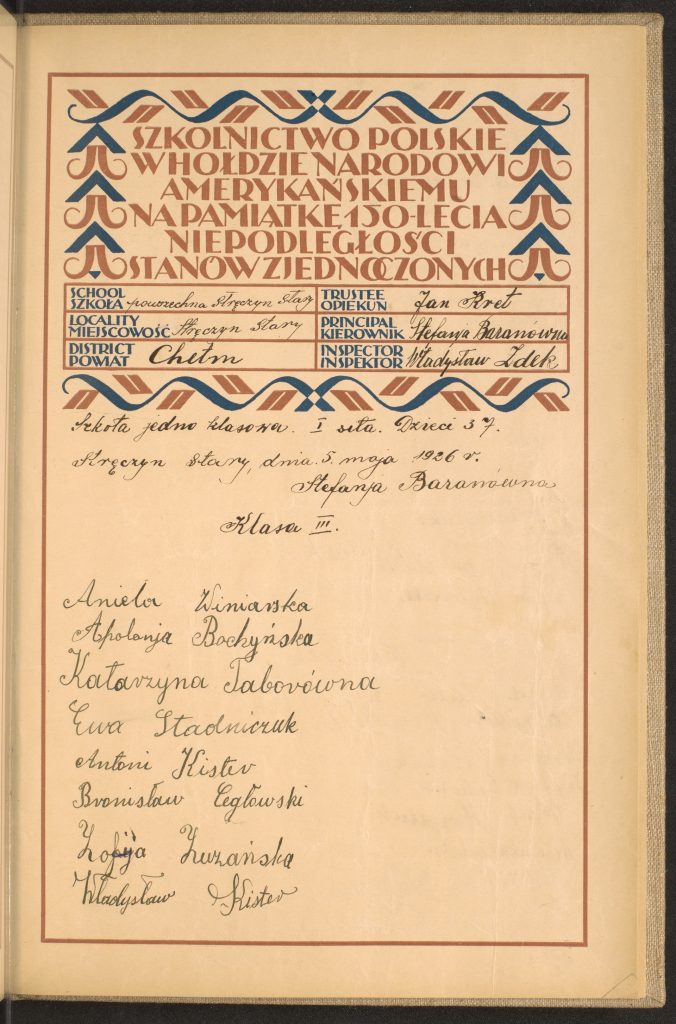 SZKOLNICTWO POLSKIE
W HOŁDZIE NARODOWI
AMERYKAŃSKIEMU
NA PAMIĄTKĘ 150-LECIA
NIEPODLEGŁOŚCI
STANÓW ZJEDNOCZONYCH
SCHOOL SZKOŁA powszechna Stręczyn Stary
TRUSTEE OPIEKUN Jan Kret
LOCALITY MIEJSCOWOŚĆ Stręczyn Stary
PRINCIPAL KIEROWNIK Stefanja Baranówna
DISTRICT POWIAT Chełm
INSPECTOR INSPEKTOR Władysław Zdek
Szkoła jedno klasowa. I siła. Dzieci 37.
Stręczyn Stary, dnia 5. maja 1926 r.
Stefanja Baranówna
Klasa III.
Aniela Winiarska
Apolonja Bochyńska
Katarzyna Taborówna
Ewa Stadniczuk
Antoni Kister
Bronisław Cegłowski
Zofija Zuzańska
Władysław Kister